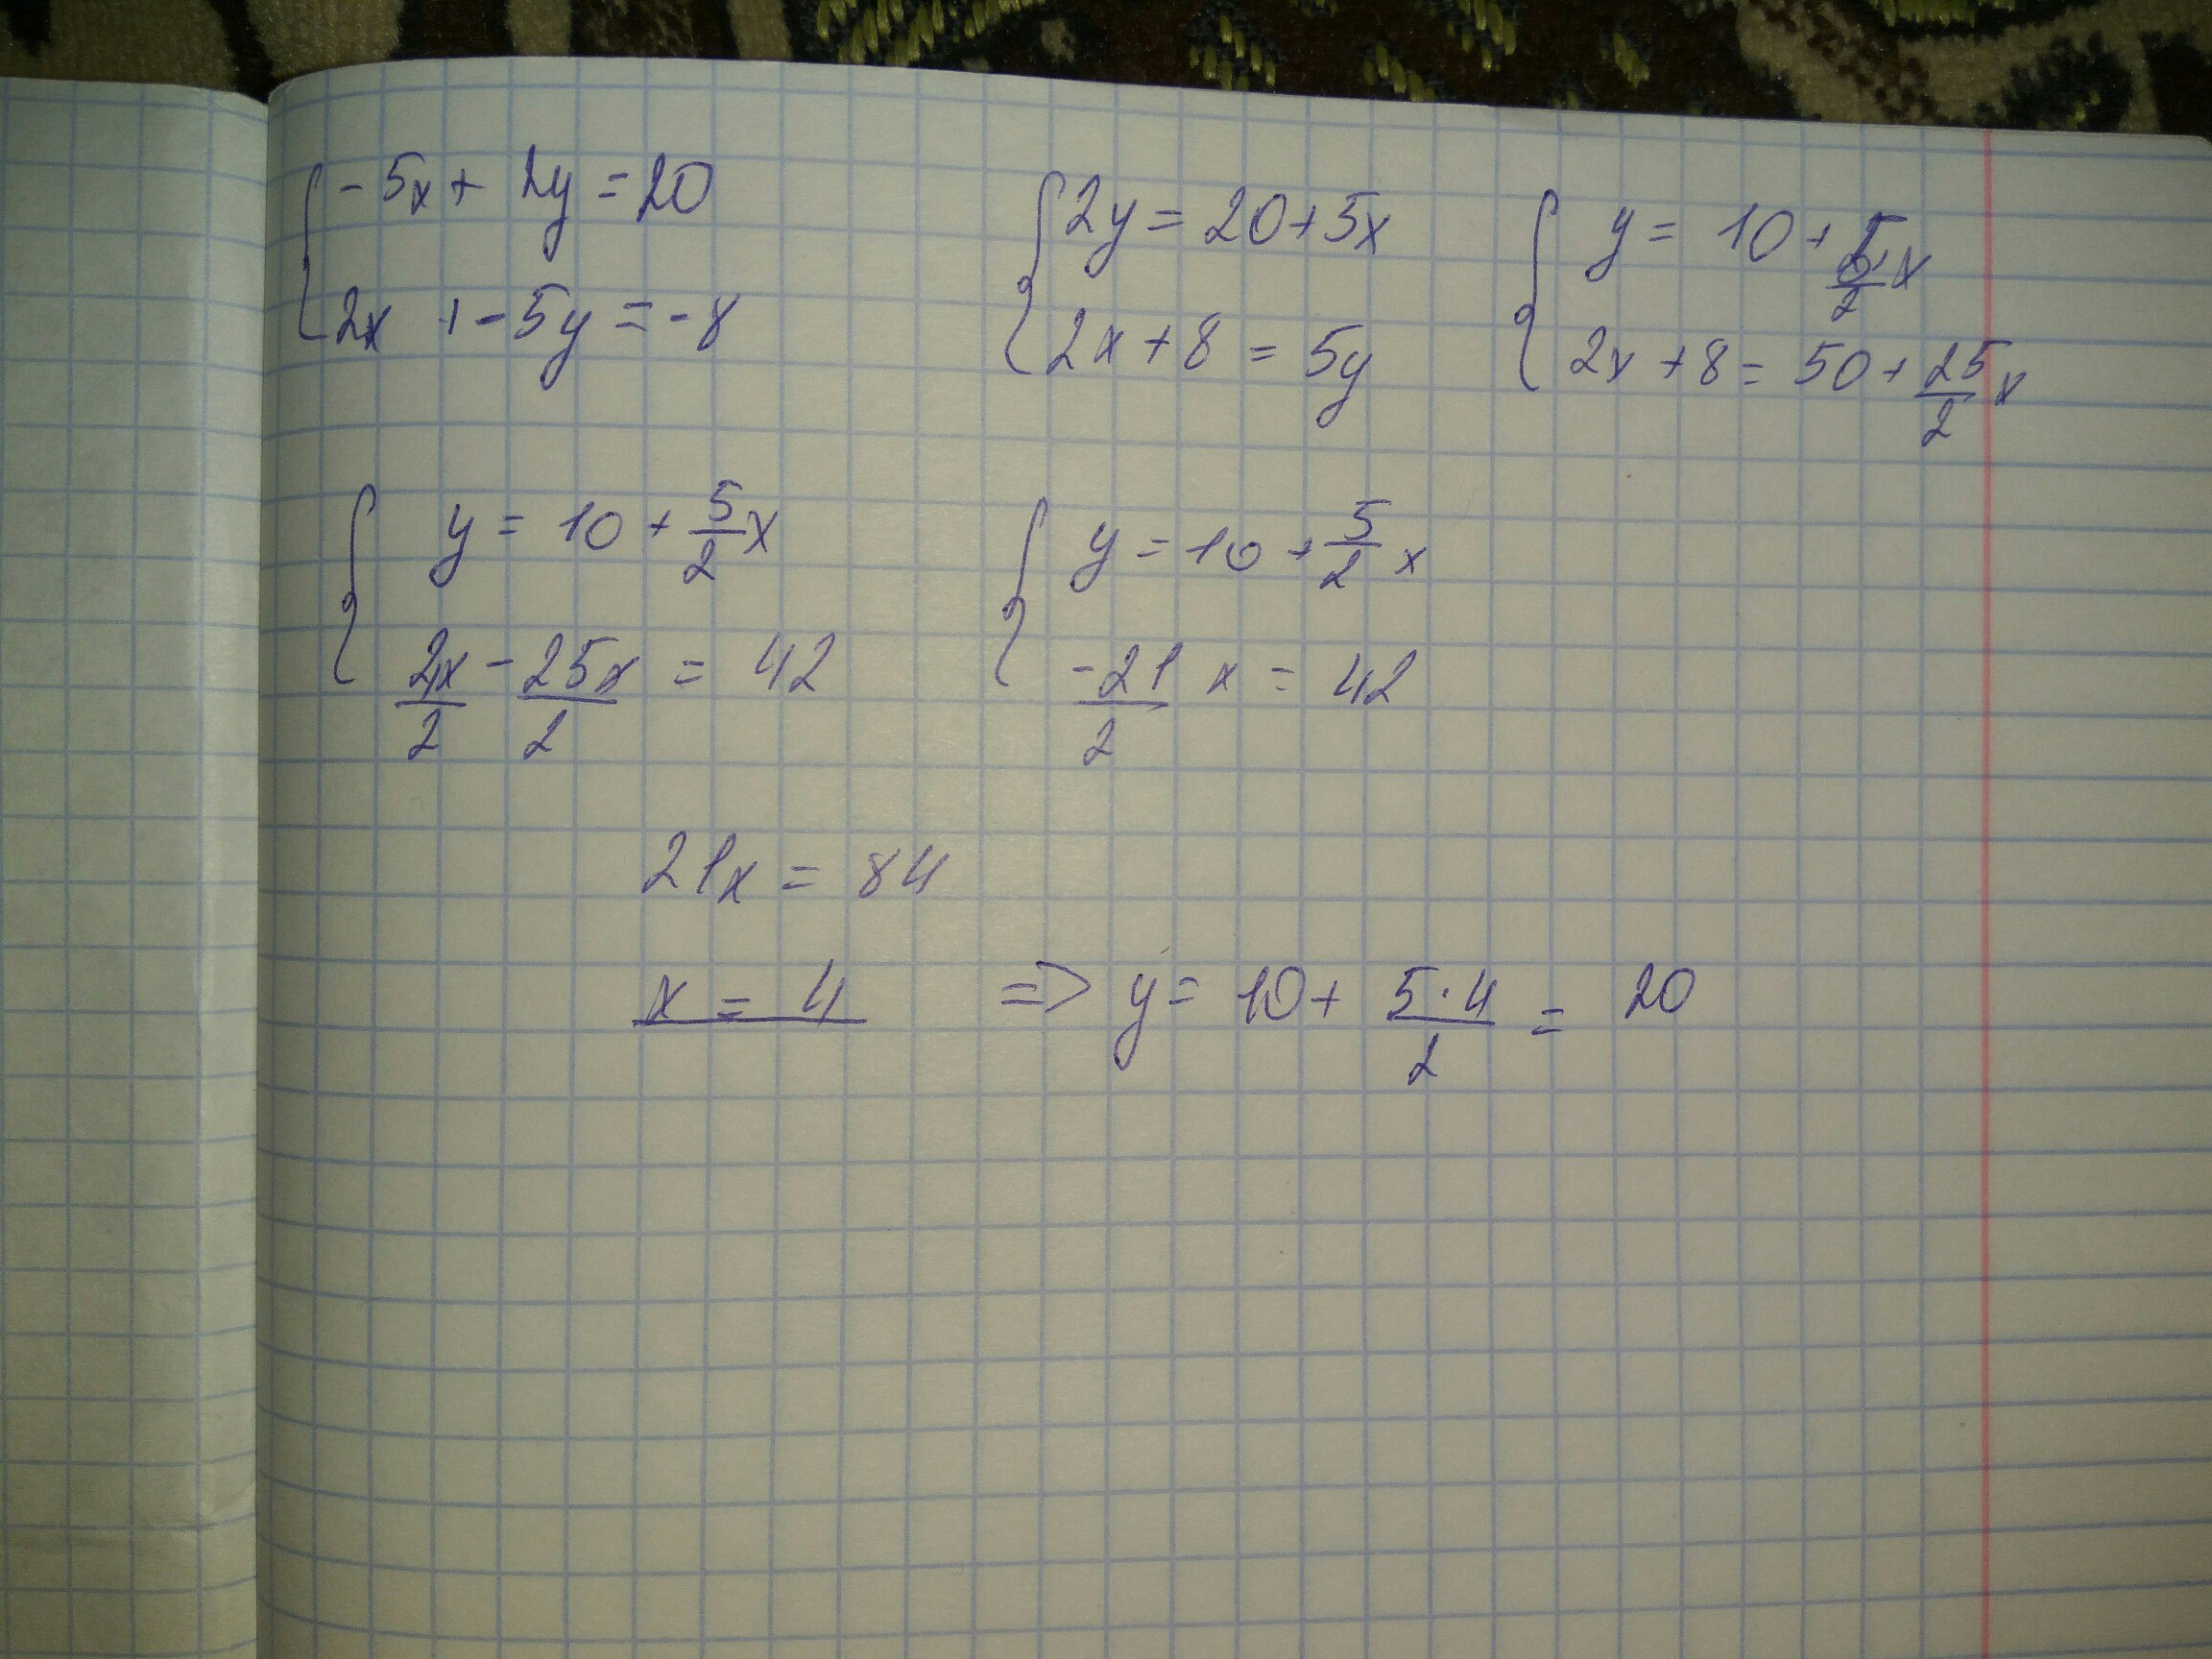 -5x + 2y = 20
2x + -5y = -8
2y = 20 + 5x
2x + 8 = 5y
y = 10 + 5/2 x
2x + 8 = 50 + 25/2 x
y = 10 + 5/2 x
4x/2 - 25x/2 = 42
y = 10 + 5/2 x
-21/2 x = 42
21x = 84
x = 4 => y = 10 + 5·4/2 = 20